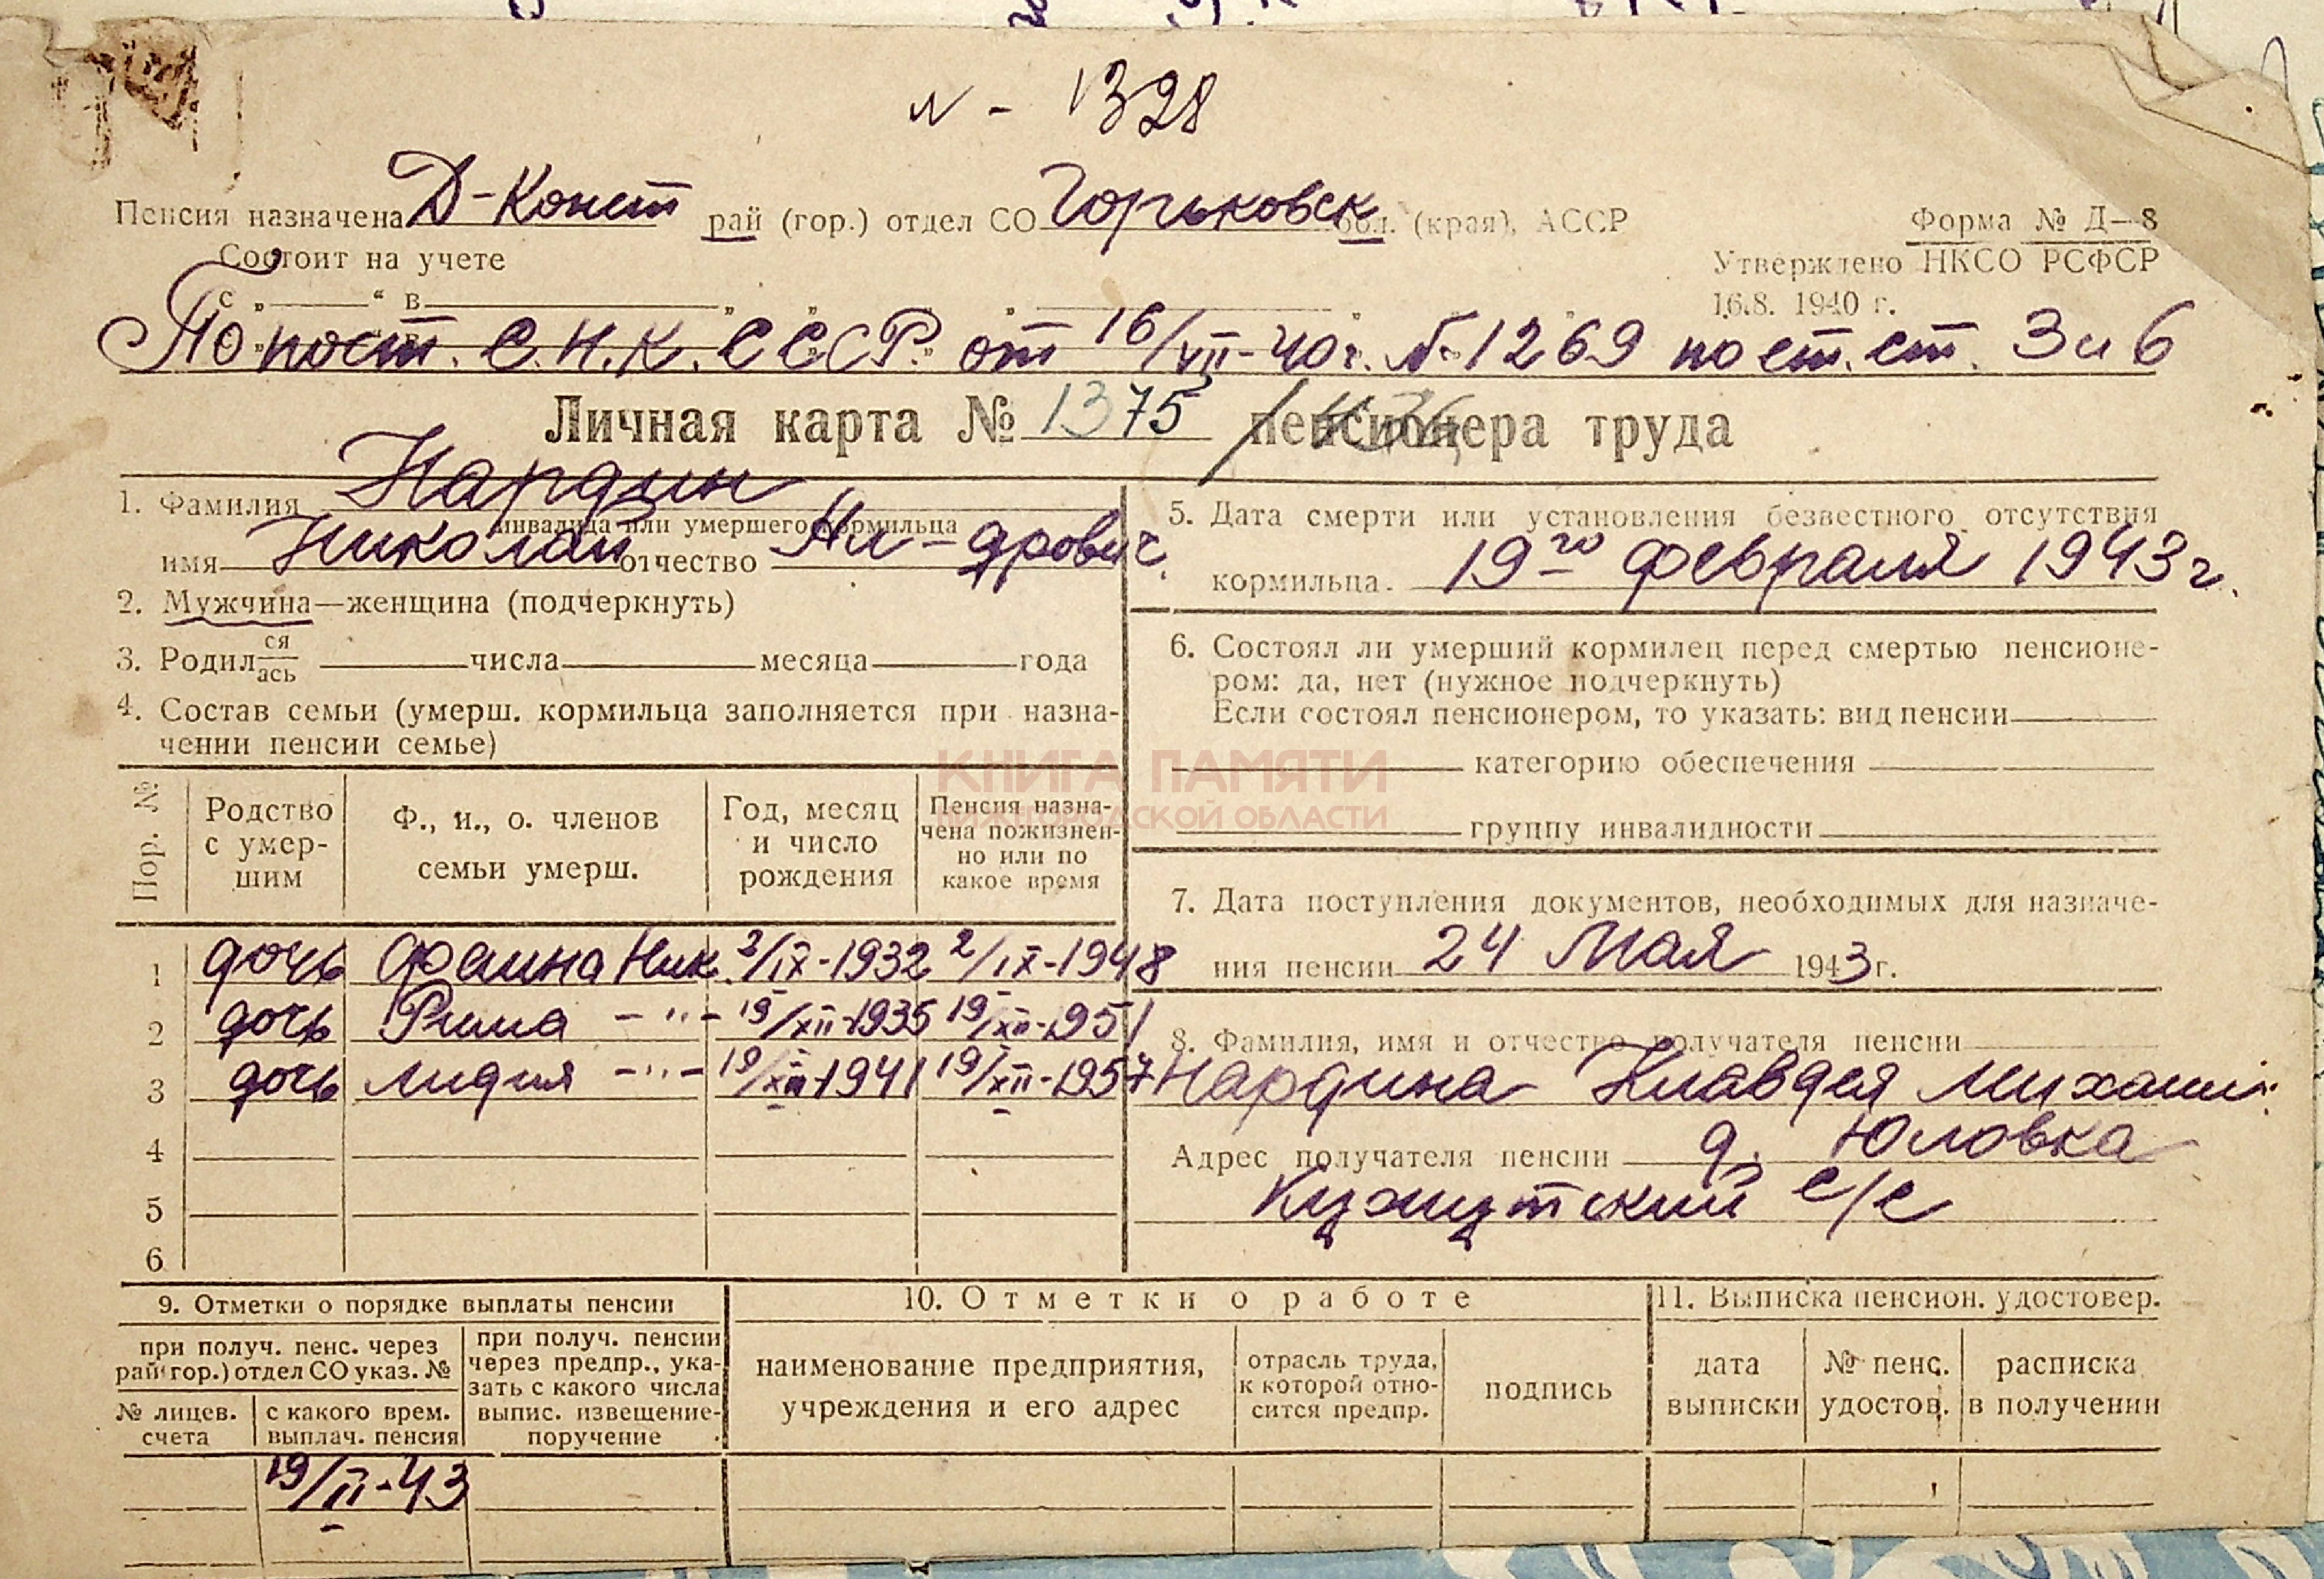 N - 1328
Пенсия назначена Д-Конст рай (гор.) отдел СО Горьковск обл. (края), АССР
Форма № Д—8
Состоит на учете
Утверждено НКСО РСФСР
с „ “ в
16.8. 1940 г.
По пост. С.Н.К. СССР. от 16/VII-40 г. № 1269 по ст. ст. 3 и 6
Личная карта № 1375 пенсионера труда
1. Фамилия Нардин
инвалида или умершего кормильца
имя Николай отчество Ал-дрович
2. Мужчина—женщина (подчеркнуть)
3. Родил ся/ась числа месяца года
4. Состав семьи (умерш. кормильца заполняется при назна-
чении пенсии семье)
Пор. №
Родство
с умер-
шим
Ф., и., о. членов
семьи умерш.
Год, месяц
и число
рождения
Пенсия назна-
чена пожизнен-
но или по
какое время
1 дочь Фаина Ник. 2/IX-1932 2/IX-1948
2 дочь Римма -"- 19/XII-1935 19/XII-1951
3 дочь Лидия -"- 19/XII-1941 19/XII-1957
4
5
6
5. Дата смерти или установления безвестного отсутствия
кормильца. 19го февраля 1943 г.
6. Состоял ли умерший кормилец перед смертью пенсионе-
ром: да, нет (нужное подчеркнуть)
Если состоял пенсионером, то указать: вид пенсии
категорию обеспечения
группу инвалидности
КНИГА ПАМЯТИ
НИЖЕГОРОДСКОЙ ОБЛАСТИ
7. Дата поступления документов, необходимых для назначе-
ния пенсии 24 Мая 1943 г.
8. Фамилия, имя и отчество получателя пенсии
Нардина Клавдия Михайл.
Адрес получателя пенсии д. Юловка
Кужутский с/с
9. Отметки о порядке выплаты пенсии
при получ. пенс. через
рай(гор.) отдел СО указ. №
№ лицев.
счета
с какого врем.
выплач. пенсия
при получ. пенсии
через предпр., ука-
зать с какого числа
выпис. извещение-
поручение
19/II-43
10. Отметки о работе
наименование предприятия,
учреждения и его адрес
отрасль труда,
к которой отно-
сится предпр.
подпись
11. Выписка пенсион. удостовер.
дата
выписки
№ пенс.
удостов.
расписка
в получении